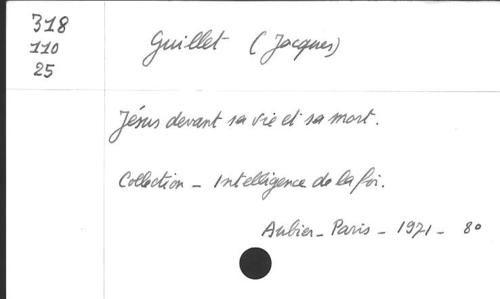 318
110
25
Guillet (Jacques)
Jésus devant sa vie et sa mort.
Collection - Intelligence de la foi.
Aubier - Paris - 1971 - 8°